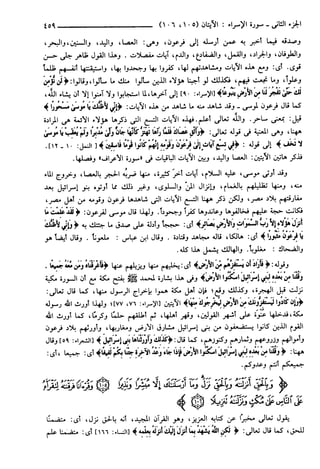 الجزء الثاني - سورة الإسراء : الآيتان (١٠٥ ، ١٠٦) ٤٥٩
وصدقه فيما أخبر به عمن أرسله إلى فرعون، وهي: العصا، واليد، والسنين، والبحر،
والطوفان، والجراد، والقمل، والضفادع، والدم، آيات مفصلات . وهذا القول ظاهر جلي حسن
قوي. أي: ومع هذه الآيات ومشاهدتهم لها، كفروا بها وجحدوا بها، واستيقنتها أنفسهم ظلماً
وعلواً، وما نجعت فيهم، فكذلك لو أجبنا هؤلاء الذين سألوا منك ما سألوا، وقالوا: ﴿لَن نُّؤْمِنَ
لَكَ حَتَّىٰ تَفْجُرَ لَنَا مِنَ الْأَرْضِ يَنبُوعًا﴾ [الإسراء: ٩٠] إلى آخرها، لما استجابوا ولا آمنوا إلا أن يشاء الله،
كما قال فرعون لموسى - وقد شاهد منه ما شاهد من هذه الآيات: ﴿إِنِّي لَأَظُنُّكَ يَا مُوسَىٰ مَسْحُورًا﴾
قيل: بمعنى ساحر. والله تعالى أعلم. فهذه الآيات التسع التي ذكرها هؤلاء الأئمة هي المرادة
ههنا، وهي المعنية في قوله تعالى: ﴿وَأَلْقِ عَصَاكَ فَلَمَّا رَآهَا تَهْتَزُّ كَأَنَّهَا جَانٌّ وَلَّىٰ مُدْبِرًا وَلَمْ يُعَقِّبْ يَا مُوسَىٰ
لَا تَخَفْ﴾ إلى قوله : ﴿فِي تِسْعِ آيَاتٍ إِلَىٰ فِرْعَوْنَ وَقَوْمِهِ إِنَّهُمْ كَانُوا قَوْمًا فَاسِقِينَ﴾ [النمل: ١٠ - ١٢].
فذكر هاتين الآيتين: العصا واليد، وبين الآيات الباقيات في «سورة الأعراف» وفصلها.
وقد أوتي موسى، عليه السلام، آيات أخر كثيرة، منها ضربه الحجر بالعصا، وخروج الماء
منه، ومنها تظليلهم بالغمام، وإنزال المنّ والسلوى، وغير ذلك مما أوتوه بنو إسرائيل بعد
مفارقتهم بلاد مصر، ولكن ذكر ههنا التسع الآيات التي شاهدها فرعون وقومه من أهل مصر،
فكانت حجة عليهم فخالفوها وعاندوها كفراً وجحوداً. ولهذا قال موسى لفرعون: ﴿لَقَدْ عَلِمْتَ مَا
أَنزَلَ هَٰؤُلَاءِ إِلَّا رَبُّ السَّمَاوَاتِ وَالْأَرْضِ بَصَائِرَ﴾ أي: حججاً وأدلة على صدق ما جئتك به ﴿وَإِنِّي لَأَظُنُّكَ
يَا فِرْعَوْنُ مَثْبُورًا﴾ أي: هالكا، قاله مجاهد وقتادة . وقال ابن عباس : ملعوناً . وقال أيضاً هو
والضحاك : مغلوباً. والهالك يشمل هذا كله.
وقوله: ﴿فَأَرَادَ أَن يَسْتَفِزَّهُم مِّنَ الْأَرْضِ﴾ أي: يخليهم منها ويزيلهم عنها ﴿فَأَغْرَقْنَاهُ وَمَن مَّعَهُ جَمِيعًا .
وَقُلْنَا مِن بَعْدِهِ لِبَنِي إِسْرَائِيلَ اسْكُنُوا الْأَرْضَ﴾ وفي هذا بشارة لمحمد ﷺ بفتح مكة مع أن السورة مكية
نزلت قبل الهجرة، وكذلك وقع، فإن أهل مكة هموا بإخراج الرسول منها، كما قال تعالى:
﴿وَإِن كَادُوا لَيَسْتَفِزُّونَكَ مِنَ الْأَرْضِ لِيُخْرِجُوكَ مِنْهَا﴾ الآيتين [الإسراء: ٧٦، ٧٧]، ولهذا أورث الله رسوله
مكة، فدخلها عنوة على أشهر القولين، وقهر أهلها، ثم أطلقهم حلماً وكرماً، كما أورث الله
القوم الذين كانوا يستضعفون من بني إسرائيل مشارق الأرض ومغاربها، وأورثهم بلاد فرعون
وأموالهم وزروعهم وثمارهم وكنوزهم، كما قال: ﴿كَذَٰلِكَ وَأَوْرَثْنَاهَا بَنِي إِسْرَائِيلَ﴾ [الشعراء: ٥٩] وقال
ههنا: ﴿وَقُلْنَا مِن بَعْدِهِ لِبَنِي إِسْرَائِيلَ اسْكُنُوا الْأَرْضَ فَإِذَا جَاءَ وَعْدُ الْآخِرَةِ جِئْنَا بِكُمْ لَفِيفًا﴾ أي: جميعا ، أي:
جميعكم أنتم وعدوكم.
﴿وَبِالْحَقِّ أَنزَلْنَاهُ وَبِالْحَقِّ نَزَلَ وَمَا أَرْسَلْنَاكَ إِلَّا مُبَشِّرًا وَنَذِيرًا وَقُرْآنًا فَرَقْنَاهُ لِتَقْرَأَهُ
عَلَى النَّاسِ عَلَىٰ مُكْثٍ وَنَزَّلْنَاهُ تَنزِيلًا﴾
يقول تعالى مخبراً عن كتابه العزيز، وهو القرآن المجيد، أنه بالحق نزل، أي: متضمنًا
للحق، كما قال تعالى: ﴿لَّٰكِنِ اللَّهُ يَشْهَدُ بِمَا أَنزَلَ إِلَيْكَ أَنزَلَهُ بِعِلْمِهِ﴾ [النساء: ١٦٦] أي: متضمنا علم